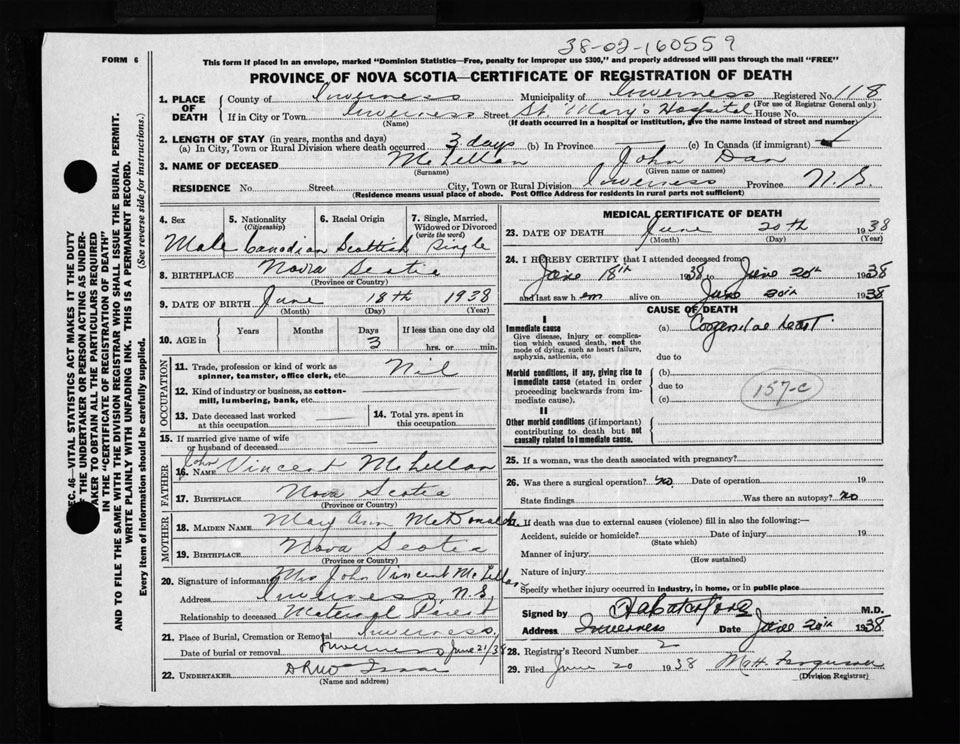 38-02-160559
FORM 6
This form if placed in an envelope, marked "Dominion Statistics—Free, penalty for improper use $300," and properly addressed will pass through the mail "FREE"
PROVINCE OF NOVA SCOTIA—CERTIFICATE OF REGISTRATION OF DEATH
1. PLACE OF DEATH
County of Inverness Municipality of Inverness Registered No. 118
(For use of Registrar General only)
If in City or Town Inverness Street St. Mary's Hospital House No.
(Name) (If death occurred in a hospital or institution, give the name instead of street and number)
2. LENGTH OF STAY (in years, months and days)
(a) In City, Town or Rural Division where death occurred 3 days (b) In Province — (c) In Canada (if immigrant)
3. NAME OF DECEASED McLellan John Dan
(Surname) (Given name or names)
RESIDENCE No. Street City, Town or Rural Division Inverness Province N. S.
(Residence means usual place of abode. Post Office Address for residents in rural parts not sufficient)
4. Sex
Male
5. Nationality
(Citizenship)
Canadian
6. Racial Origin
Scottish
7. Single, Married, Widowed or Divorced
(write the word)
Single
8. BIRTHPLACE Nova Scotia
(Province or Country)
9. DATE OF BIRTH June 18th 1938
(Month) (Day) (Year)
10. AGE in
Years Months Days If less than one day old
3 hrs. or min.
OCCUPATION
11. Trade, profession or kind of work as
spinner, teamster, office clerk, etc. Nil
12. Kind of industry or business, as cotton-
mill, lumbering, bank, etc.
13. Date deceased last worked
at this occupation
14. Total yrs. spent in
this occupation
15. If married give name of wife
or husband of deceased
FATHER
16. NAME John Vincent McLellan
17. BIRTHPLACE Nova Scotia
(Province or Country)
MOTHER
18. MAIDEN NAME Mary Ann McDonald
19. BIRTHPLACE Nova Scotia
(Province or Country)
20. Signature of informant Mrs John Vincent McLellan
Address Inverness, N.S.
Relationship to deceased Maternal Parent
21. Place of Burial, Cremation or Removal Inverness
Date of burial or removal Inverness June 21/38
22. UNDERTAKER
(Name and address)
MEDICAL CERTIFICATE OF DEATH
23. DATE OF DEATH June 20th 1938
(Month) (Day) (Year)
24. I HEREBY CERTIFY that I attended deceased from
June 18th 1938 to June 20th 1938
and last saw h em alive on June 20th 1938
CAUSE OF DEATH
I
Immediate cause
Give disease, injury or complication which caused death, not the mode of dying, such as heart failure, asphyxia, asthenia, etc
(a) Congenital heart
due to
Morbid conditions, if any, giving rise to immediate cause (stated in order proceeding backwards from immediate cause).
(b)
due to
(c)
157-c
II
Other morbid conditions (if important) contributing to death but not causally related to immediate cause.
25. If a woman, was the death associated with pregnancy?
26. Was there a surgical operation? no Date of operation 19
State findings Was there an autopsy? no
27. If death was due to external causes (violence) fill in also the following:—
Accident, suicide or homicide? Date of injury 19
(State which)
Manner of injury
(How sustained)
Nature of injury
Specify whether injury occurred in industry, in home, or in public place
Signed by M.D.
Address Inverness Date June 20th 1938
28. Registrar's Record Number 2
29. Filed June 20 1938 Ferguson
(Division Registrar)
SEC. 46—VITAL STATISTICS ACT MAKES IT THE DUTY
OF THE UNDERTAKER OR PERSON ACTING AS UNDER-
TAKER TO OBTAIN ALL THE PARTICULARS REQUIRED
IN THE "CERTIFICATE OF REGISTRATION OF DEATH"
AND TO FILE THE SAME WITH THE DIVISION REGISTRAR WHO SHALL ISSUE THE BURIAL PERMIT.
WRITE PLAINLY WITH UNFADING INK. THIS IS A PERMANENT RECORD.
Every item of information should be carefully supplied. (See reverse side for instructions.)